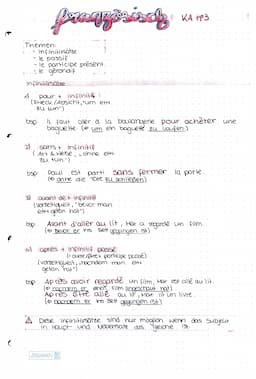 französisch KA n°3
Themen:
- Infinitivsätze
- le passif
- le participe présent
- le gérondif
Infinitivsätze
1) pour + infinitif:
(Zweck/Absicht, "um etw.
zu tun")
bsp: Il faut aller à la boulangerie pour acheter une
baguette (≙ um ein baguette zu kaufen)
2) sans + infinitif
("ohne etw.
zu tun")
bsp: Paul est parti sans fermer la porte.
(≙ ohne die Tür zu schließen)
3) avant de + infinitif
(Vorzeitigkeit, "bevor man
etw. getan hat")
bsp: Avant d'aller au lit, Mar a regardé un film.
(≙ bevor er ins Bett gegangen ist)
4) après + infinitif passé
(avoir/être + participe passé)
(Vorzeitigkeit, "nachdem man etw.
getan hat")
bsp: Après avoir regardé un film, Mar est allé au lit.
(≙ nachdem er einen Film angeschaut hat)
Après être allé au lit, Mar lit un livre.
(≙ nachdem er ins Bett gegangen ist)
Diese Infinitivsätze sind nur möglich wenn das Subjekt
in Haupt- und Nebensatz das gleiche ist.